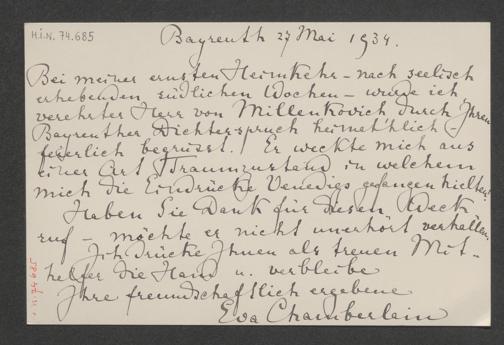 H.I.N. 74.685
Bayreuth 27 Mai 1934.
Bei meiner ernsten Heimkehr – nach seelisch
erhebenden südlichen Wochen – wurde ich
verehrter Herr von Millenkovich durch Ihren
Bayreuther Dichterspruch heimathlich
feierlich begrüsst. Er weckte mich aus
einer Art Traumzustand in welchem
mich die Eindrücke Venedigs gefangen hielten.
Haben Sie Dank für diesen Weck
ruf – möchte er nicht unerhört verhallen.
Ich drücke Ihnen als treuen Mit-
helfer die Hand u. verbleibe
Ihre freundschaftlich ergebene
Eva Chamberlain